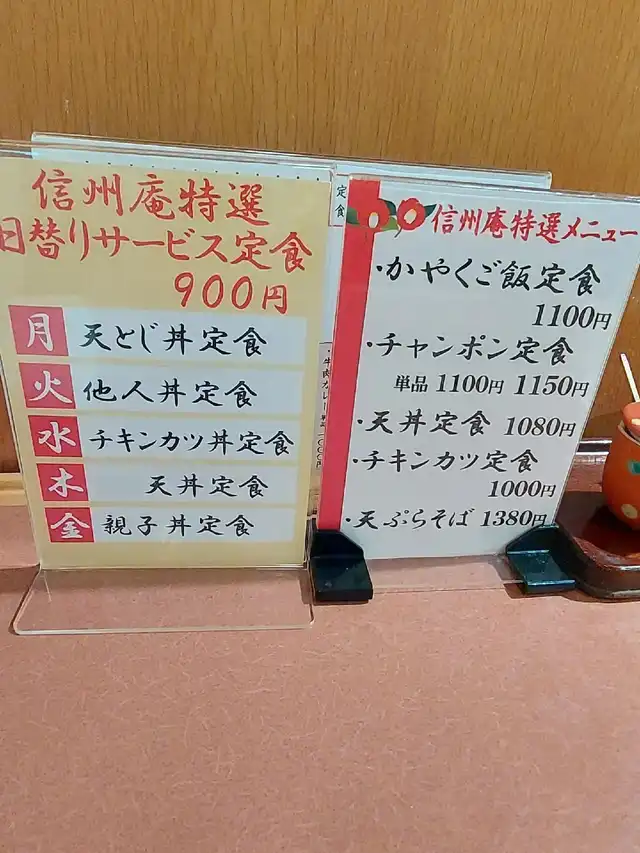 信州庵特選
日替りサービス定食
900円
月 天とじ丼定食
火 他人丼定食
水 チキンカツ丼定食
木 天丼定食
金 親子丼定食
定食
信州庵特選メニュー
・かやくご飯定食
1100円
・チャンポン定食
単品 1100円 1150円
・天丼定食 1080円
・チキンカツ定食
1000円
・天ぷらそば 1380円